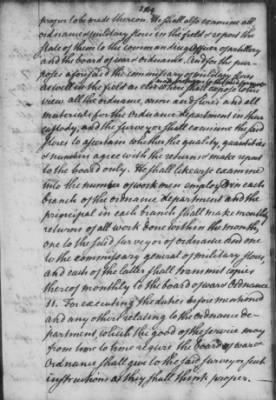 proper to be made thereon. He shall also examine all
ordnance & military stores in the field & report the
state of them to the commanding officer of artillery
and the board of war & ordnance. And for the pur-
pose aforesaid the commissary of military stores
as well in the field as elsewhere shall expose to his
view all the ordnance, arms and stores and all
materials for the ordnance department in their
custody; and the surveyor shall examine the said
stores to ascertain whether the quality, quantities
& numbers agree with the returns & make report
to the board only. He shall likewise examine
into the number of workmen employed in each
branch of the ordnance department and the
principal in each branch shall make monthly
returns of all work done within the month,
one to the said surveyor of ordnance and one
to the commissary general of military stores,
and each of the latter shall transmit copies
thereof monthly to the board of war & Ordnance
11. For executing the duties before mentioned
and any other relating to the ordnance de-
partment, which the good of the service may
from time to time require the board of war &
Ordnance shall give to the said surveyor such
instructions as they shall think proper.